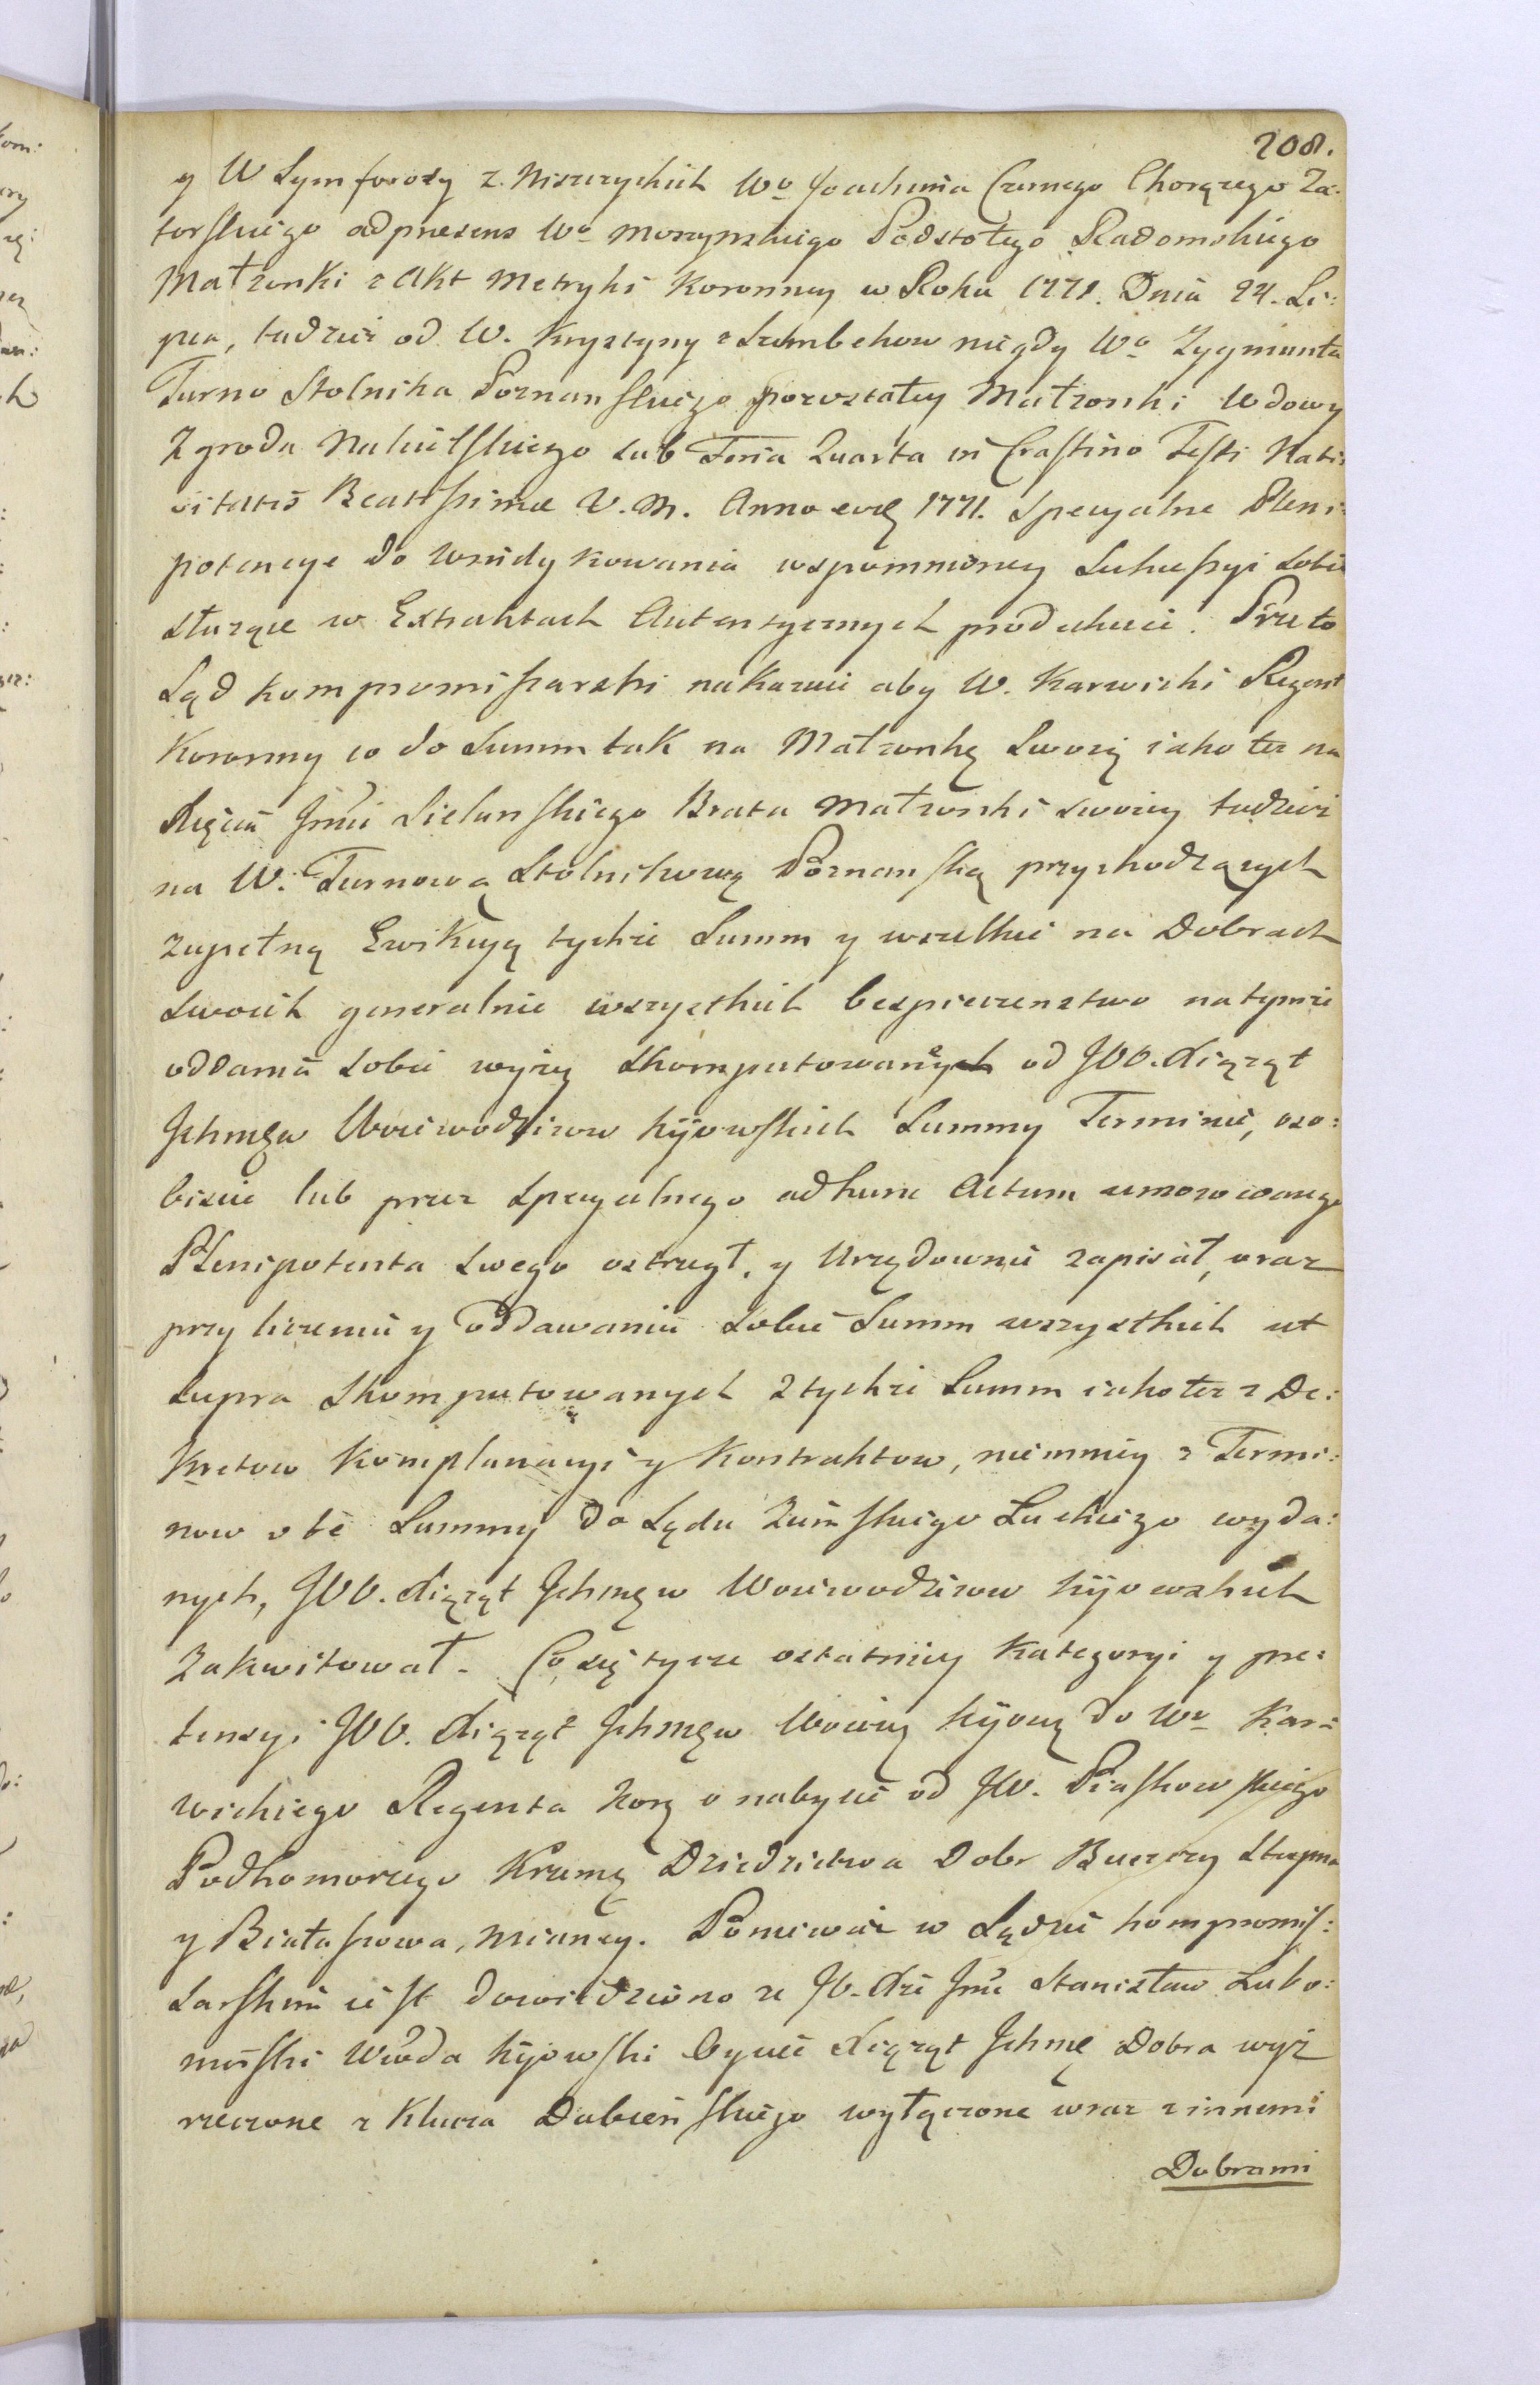 208.
y W Symforozy z Niszczyckich Wo Joachima Czernego Chorązego Za:
torskiego adpraesens Wo Moszynskiego Podstolego Radomskiego
Małzonki z Akt Metryki Koronney w Roku 1771. Dnia 24. Li:
pca, tudziez od W. Krystyny z Szembekow niegdy Wo Zygmunta
Turno Stolnika Poznanskiego pozostałey Małzonki Wdowy
Zgrodu Nakielskiego sub Feria Quarta in Crastino Festi Nati:
vitatis Beatissimae V. M. Anno eoq 1771. Specyalne Pleni:
potencye do windykowania wspomnioney Sukcessyi Sobie
słuzące w Extraktach Autentycznych produkuie. Przeto
Sąd kompromissarski nakazuie aby W. Karwicki Regent
Koronny co do Summ tak na Małzonkę Swoią iako tez na
Xięcia Jmci Sielunskiego Brata Małzonki swoiey tudziez
na W. Turnową Stolnikową Poznanską przychodzących
zupełną Ewikcyą tychze Summ y wszelkie na Dobrach
Swoich generalnie wszystkich bespieczenstwo natymze
oddania Sobie wyzey skomputowaney od JOO. Xiąząt
Ichmęw Woiewodzicow kijowskich Summy Terminie, oso:
biscie lub przez Specyalnego ad hunc Actum umocowanego
Plenipotenta Swego ostrzegł, y Urzędownie zapisał, oraz
przy liczeniu y oddawaniu Sobie Summ wszystkich ut
Supra Skomputowanych z tychze Summ iako tez z De:
kretow Komplanacyi y Kontraktow, niemniey z Termi:
now o te Summy do Sądu Ziemskiego Luckiego wyda:
nych, JOO. Xiąząt Ichmęw Woiewodzicow kijowskich
Zakwitował. Co się tycze ostatniey Kategoryi y pre:
tensyi JOO. Xiąząt Ichmęw Wowicz kijowę do Wo Kar:
wickiego Regenta Korę o nabycie od JW. Piaskowskiego
Podkomorzego Krzemę Dziedzictwa Dobr Buczczy Stupna
y Białaszowa, mianey. Poniewaz w Sądzie kompromis:
Sarskim iest dowiedziono ze JO. Xże Jmć Stanisław Lubo:
mirski Wwda kijowski Oyciec Xiąząt Ichmę Dobra wyż
rzeczone z Klucza Dubienskiego wyłączone wraz z innemi
Dobrami